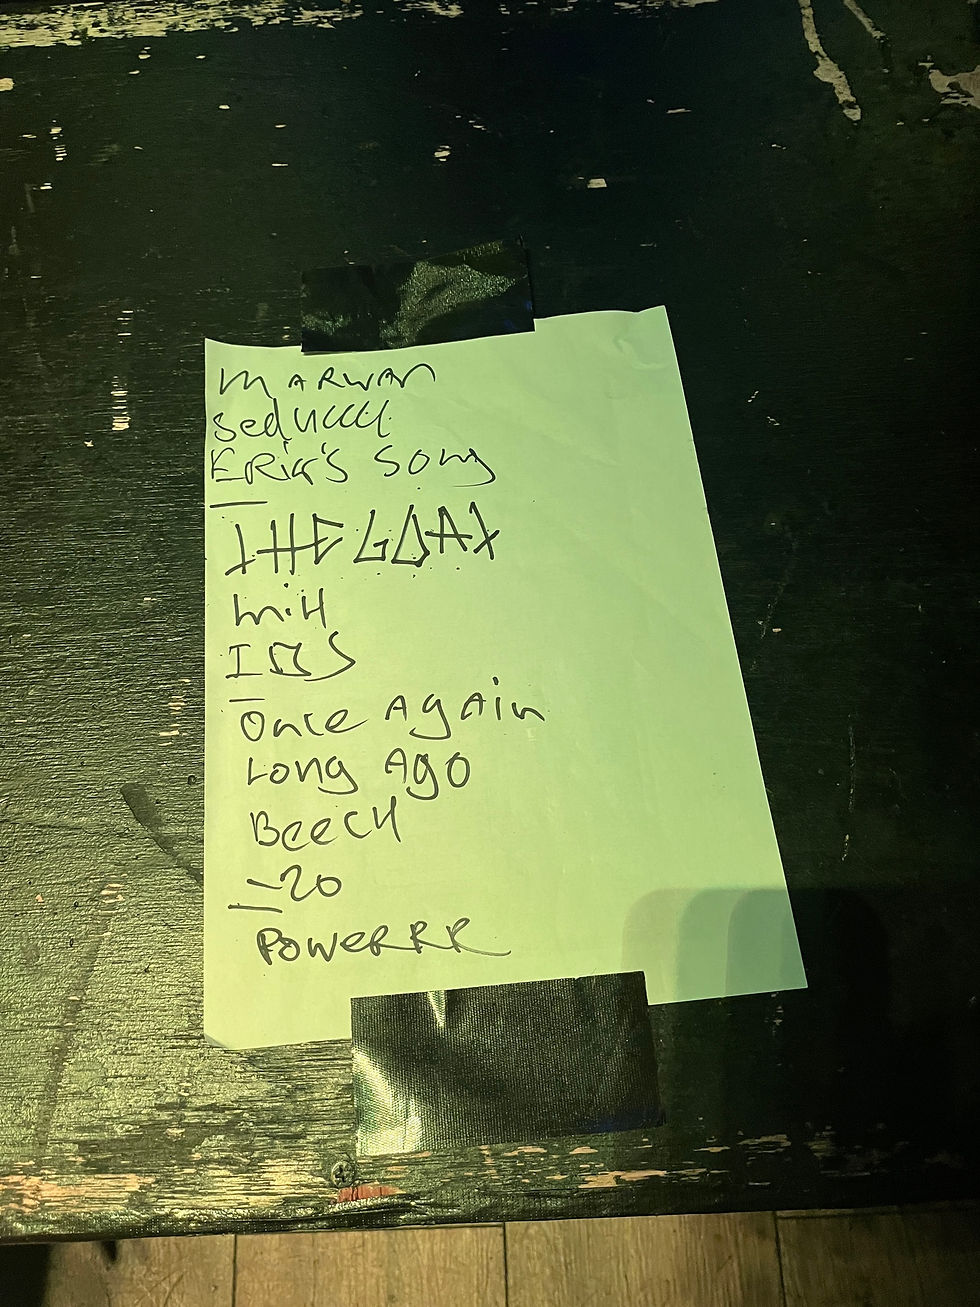 MARWAN
Eric's Song
THE GOAT
M.H
Once Again
Long Ago
BeecH
-20
PoweRRR